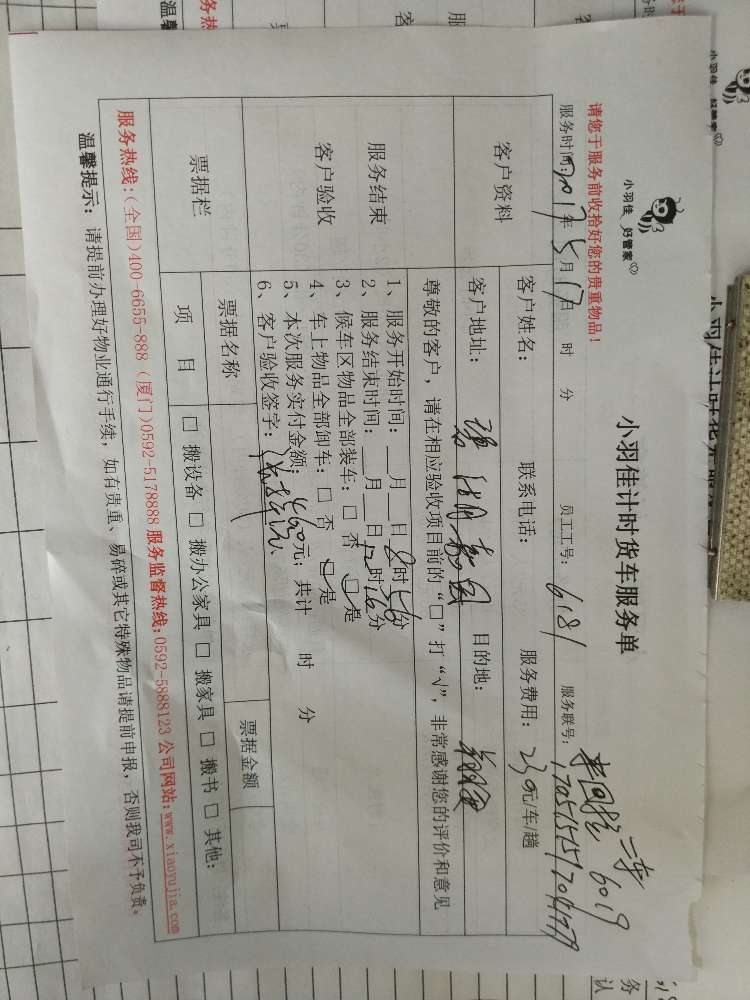 小羽佳 好管家
小羽佳计时货车服务单
请您于服务前收拾好您的贵重物品！
二车
6019
服务时间: 2017年 5月 17日 时 分 员工工号: 6181 服务联号:
客户资料
客户姓名: 联系电话: 服务费用: 230元/车/趟
客户地址: 目的地:
服务结束
客户验收
尊敬的客户，请在相应验收项目前的“□”打“√”，非常感谢您的评价和意见
1、服务开始时间: __月__日 8时56分
2、服务结束时间: __月__日12时16分
3、候车区物品全部装车: □ 否 □ 是
4、车上物品全部卸车: □ 否 □ 是
5、本次服务实付金额: 460元; 共计 时 分
6、客户验收签字:
票据栏
票据名称 票据金额
项 目 □ 搬设备 □ 搬办公家具 □ 搬家具 □ 搬书 □ 其他:
服务热线: (全国)400-6655-888 (厦门)0592-5178888 服务监督热线:0592-5888123 公司网站:www.xiaoyujia.com
温馨提示: 请提前办理好物业通行手续，如有贵重、易碎或其它特殊物品请提前申报，否则我司不予负责。